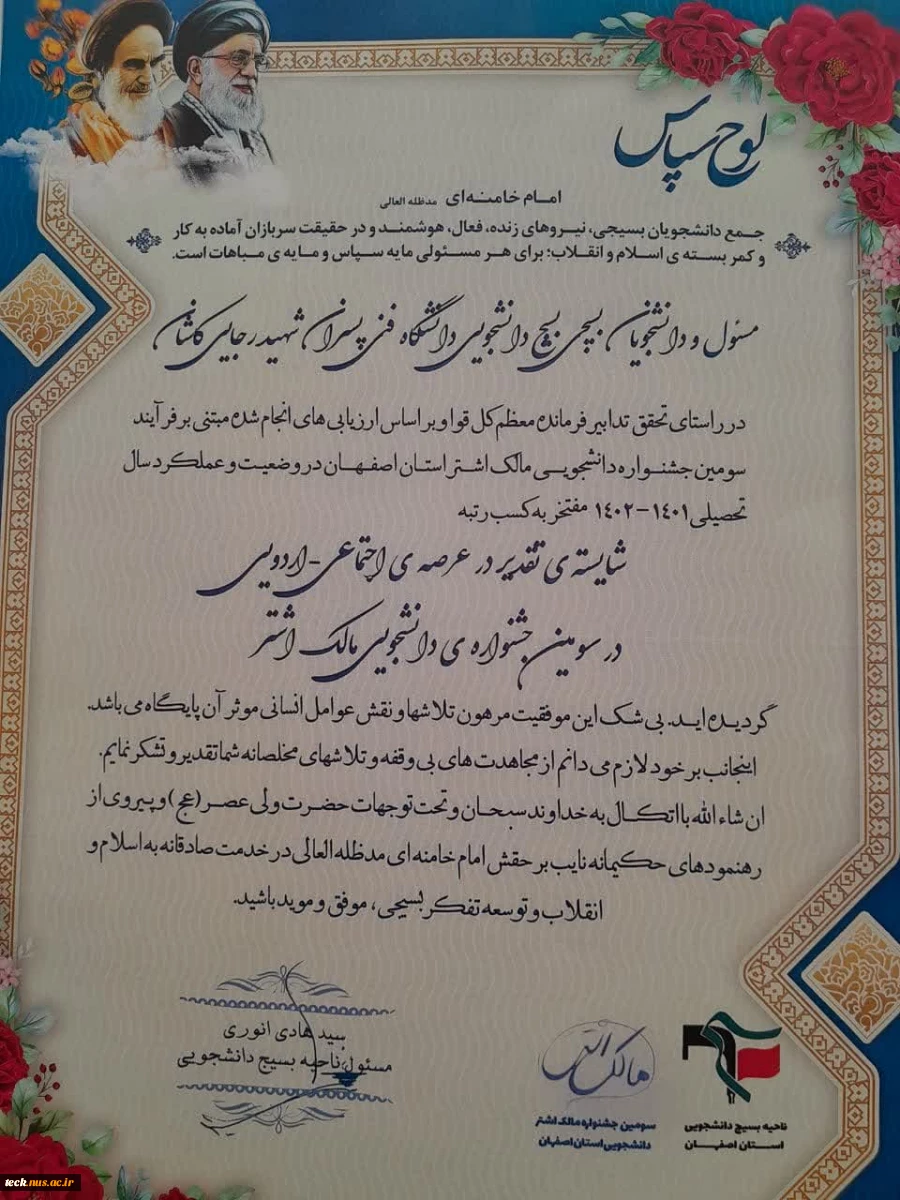 لوح سپاس
امام خامنه‌ای مدظله العالی
جمع دانشجویان بسیجی، نیروهای زنده، فعال، هوشمند و در حقیقت سربازان آماده به کار
و کمر بسته ی اسلام و انقلاب؛ برای هر مسئولی مایه سپاس و مایه ی مباهات است.
مسئول و دانشجویان بسیجی بسیج دانشجویی دانشگاه فنی پسران شهید رجایی کاشان
در راستای تحقق تدابیر فرمانده معظم کل قوا و بر اساس ارزیابی های انجام شده مبتنی بر فرآیند
سومین جشنواره دانشجویی مالک اشتر استان اصفهان در وضعیت و عملکرد سال
تحصیلی ۱۴۰۱-۱۴۰۲ مفتخر به کسب رتبه
شایسته ی تقدیر در عرصه ی اجتماعی-اردویی
در سومین جشنواره ی دانشجویی مالک اشتر
گردیده اید. بی شک این موفقیت مرهون تلاشها و نقش عوامل انسانی موثر آن پایگاه می باشد.
اینجانب بر خود لازم می دانم از مجاهدت های بی وقفه و تلاشهای مخلصانه شما تقدیر و تشکر نمایم.
ان شاء الله با اتکال به خداوند سبحان و تحت توجهات حضرت ولی عصر (عج) و پیروی از
رهنمودهای حکیمانه نایب بر حقش امام خامنه ای مدظله العالی در خدمت صادقانه به اسلام و
انقلاب و توسعه تفکر بسیجی، موفق و موید باشید.
سید هادی انوری
مسئول ناحیه بسیج دانشجویی
مالک اشتر
سومین جشنواره مالک اشتر
دانشجویی استان اصفهان
ناحیه بسیج دانشجویی
استان اصفهان
tech.nus.ac.ir